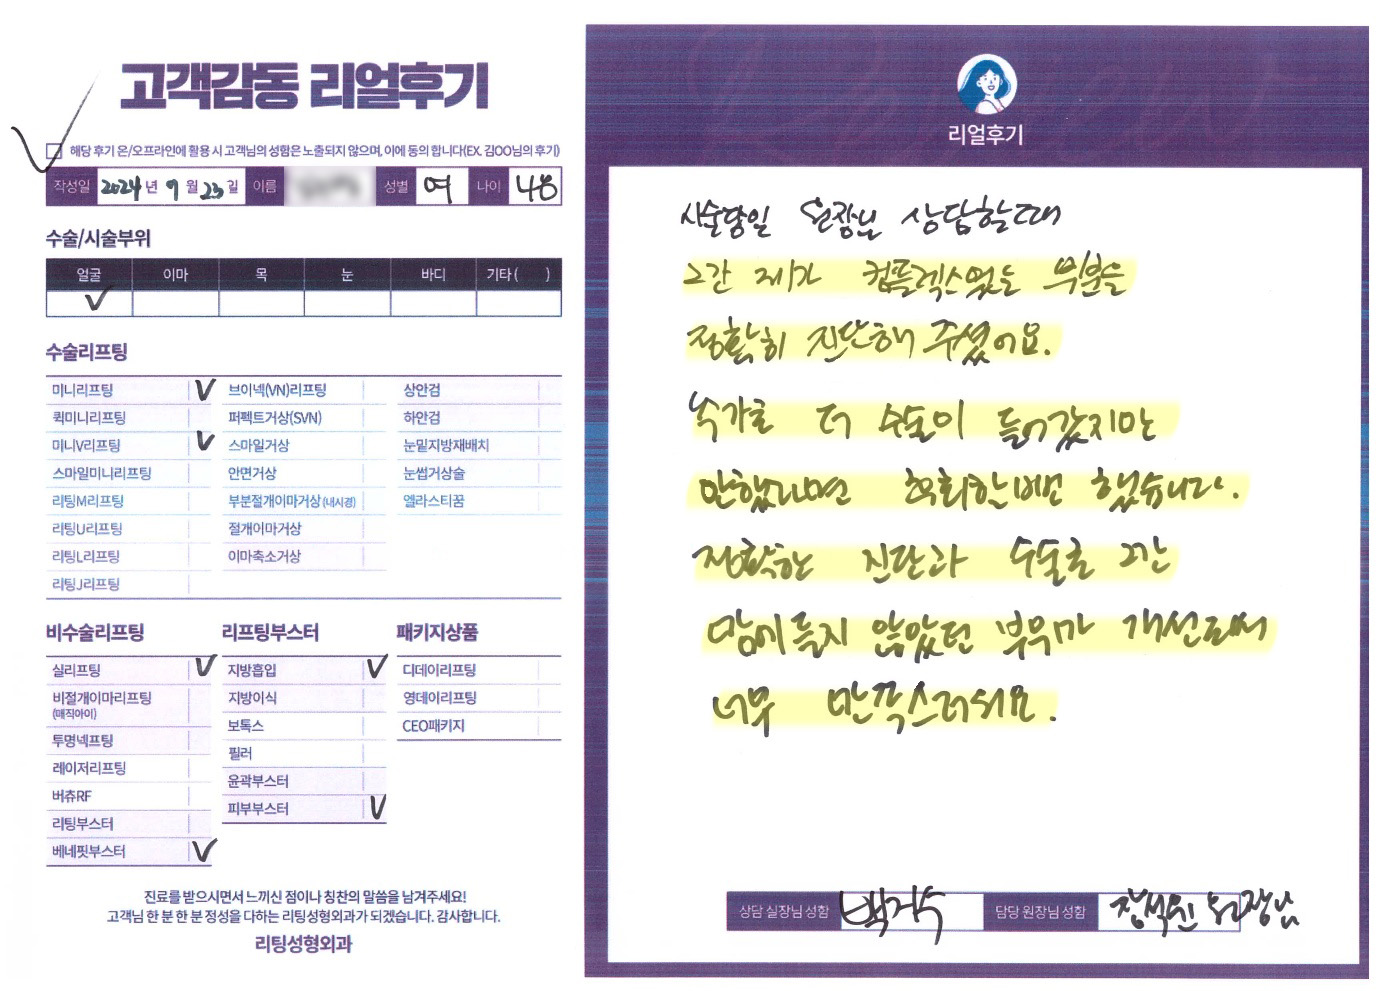 고객감동 리얼후기
해당 후기 온/오프라인에 활용 시 고객님의 성함은 노출되지 않으며, 이에 동의 합니다(EX. 김OO님의 후기)
작성일 2024 년 9 월 23 일 이름 성별 여 나이 48
수술/시술부위
얼굴 이마 목 눈 바디 기타 ( )
수술리프팅
미니리프팅 브이넥(VN)리프팅 상안검
퀵미니리프팅 퍼펙트거상(SVN) 하안검
미니V리프팅 스마일거상 눈밑지방재배치
스마일미니리프팅 안면거상 눈썹거상술
리팅M리프팅 부분절개이마거상 (내시경) 엘라스티꿈
리팅U리프팅 절개이마거상
리팅L리프팅 이마축소거상
리팅J리프팅
비수술리프팅 리프팅부스터 패키지상품
실리프팅 지방흡입 디데이리프팅
비절개이마리프팅 지방이식 영데이리프팅
(매직아이) 보톡스 CEO패키지
투명넥프팅 필러
레이저리프팅 윤곽부스터
버츄RF 피부부스터
리팅부스터
베네핏부스터
진료를 받으시면서 느끼신 점이나 칭찬의 말씀을 남겨주세요!
고객님 한 분 한 분 정성을 다하는 리팅성형외과가 되겠습니다. 감사합니다.
리팅성형외과
리얼후기
시술당일 원장님 상담할때
그간 제가 컴플렉스였는 부분을
정확히 진단해 주셨어요.
추가로 더 수술이 들어갔지만
안했다면 후회할뻔 했습니다.
정확한 진단과 수술로 그간
맘에들지 않았던 부위가 개선되어
너무 만족스러워요.
상담 실장님 성함 담당 원장님 성함 원장님